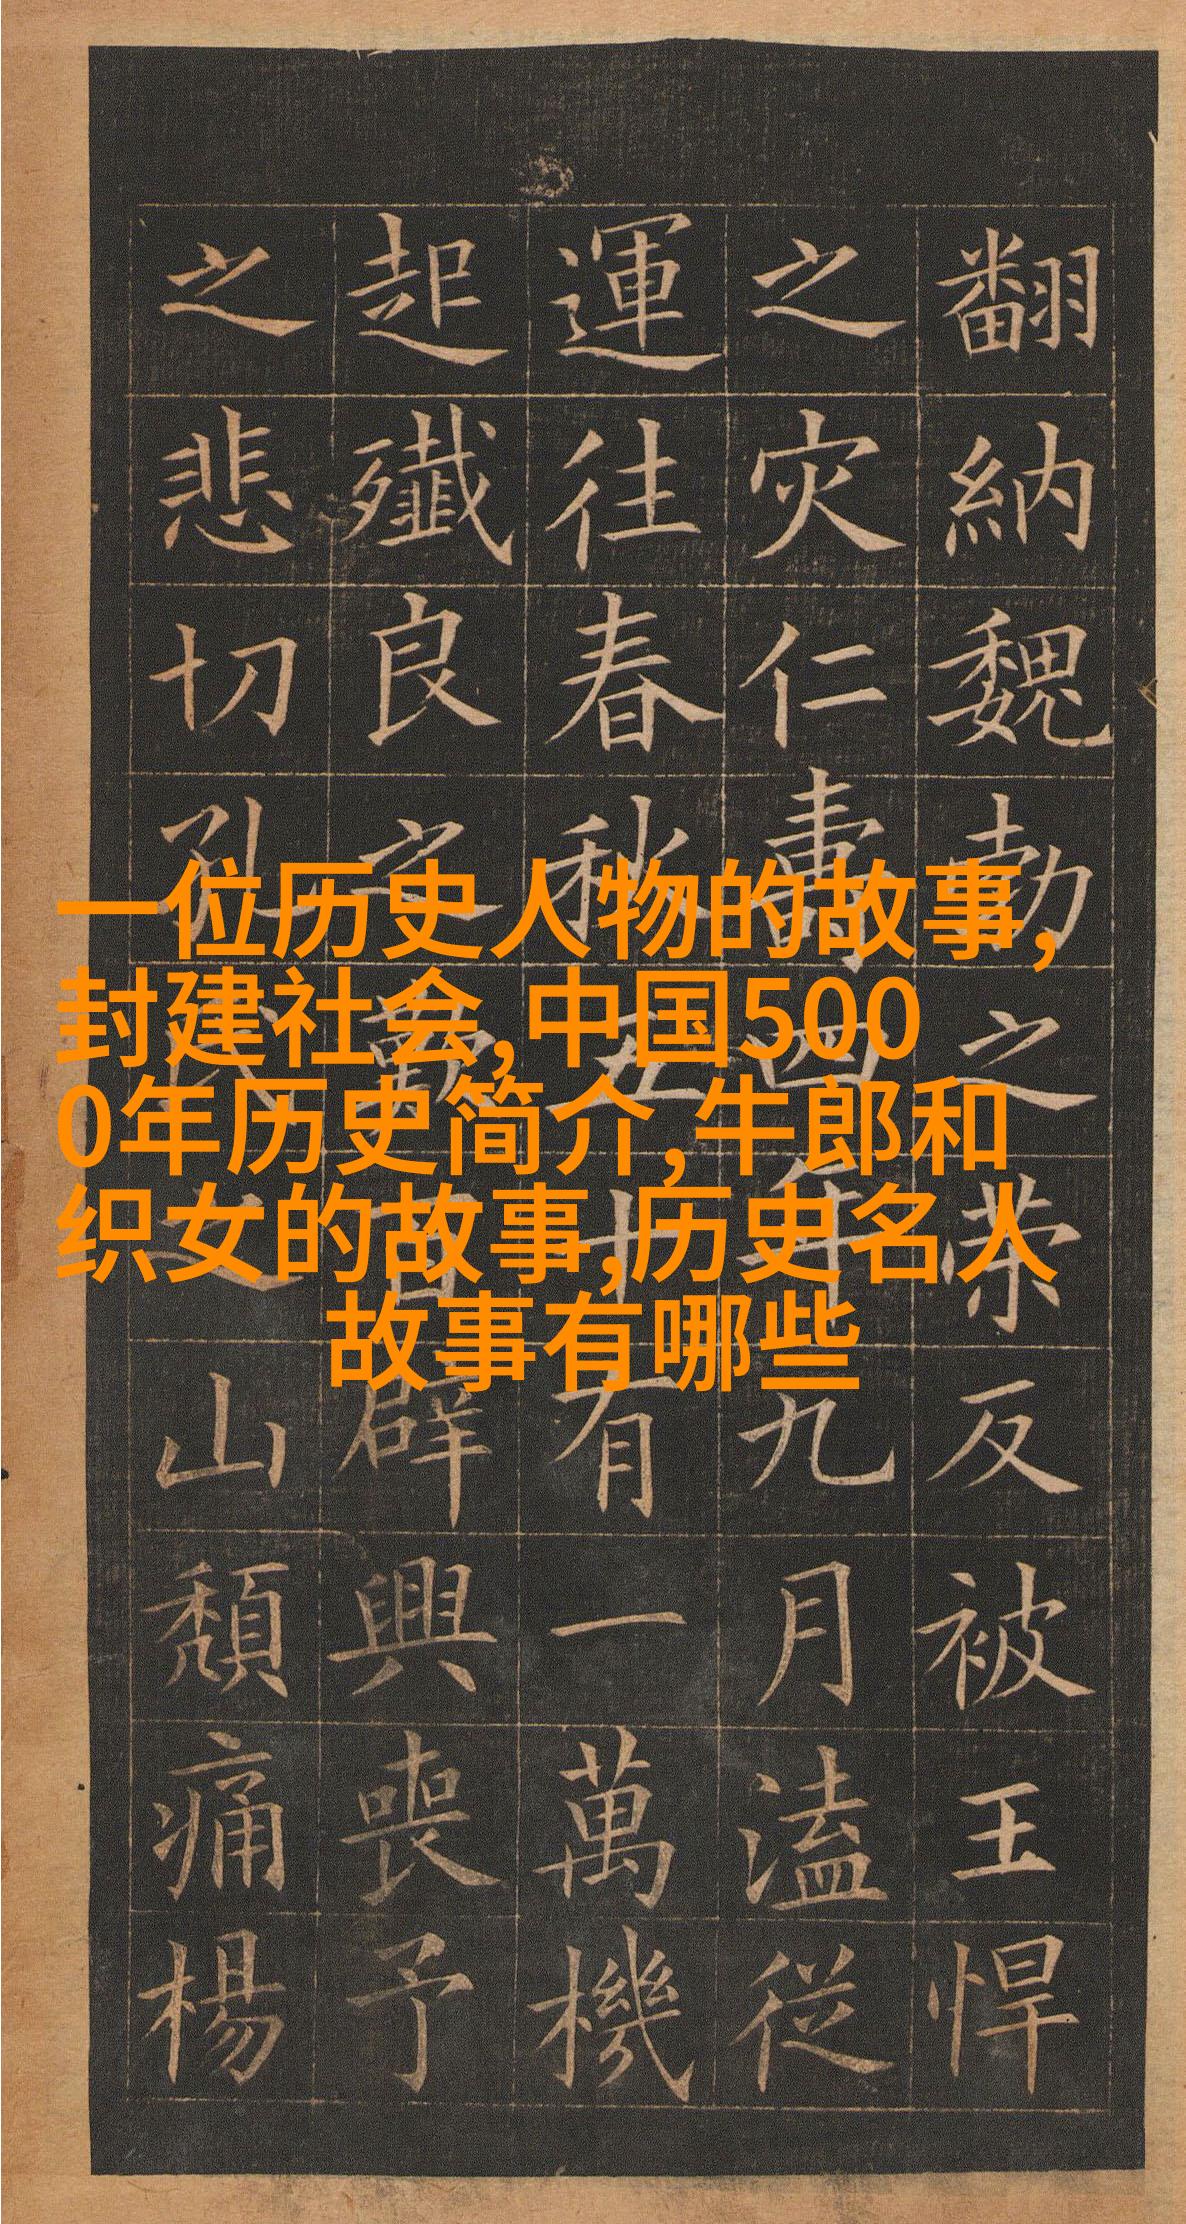 一位历史人物的故事,
封建社会,中国500
0年历史简介,牛郎和
织女的故事,历史名人
故事有哪些
翻納魏勅之荣反被王悍
之灾仁壽四年九月溘従
運往春秋五十有一萬機
起殲良之百辟興喪予
之悲切孔之山頹痛楊